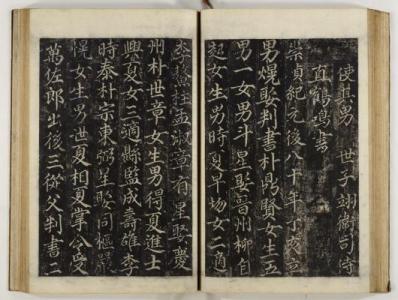 使荘男 世子翊衛司侍
直鶴鳴書
崇禎紀元後八十年丁亥立
男熀娶判書朴鼎賢女生五
男一女男斗星娶晉州柳自
起女生男時夏早歿女二適
李䵻拄孟淑章有星娶慶
州朴世章女生男得夏進士
興夏女三適縣監成壽雄李
時泰朴宗東弼星娶同樞嚴
悅女生男世夏相夏掌令受
萬佐郎出後三從父判書二